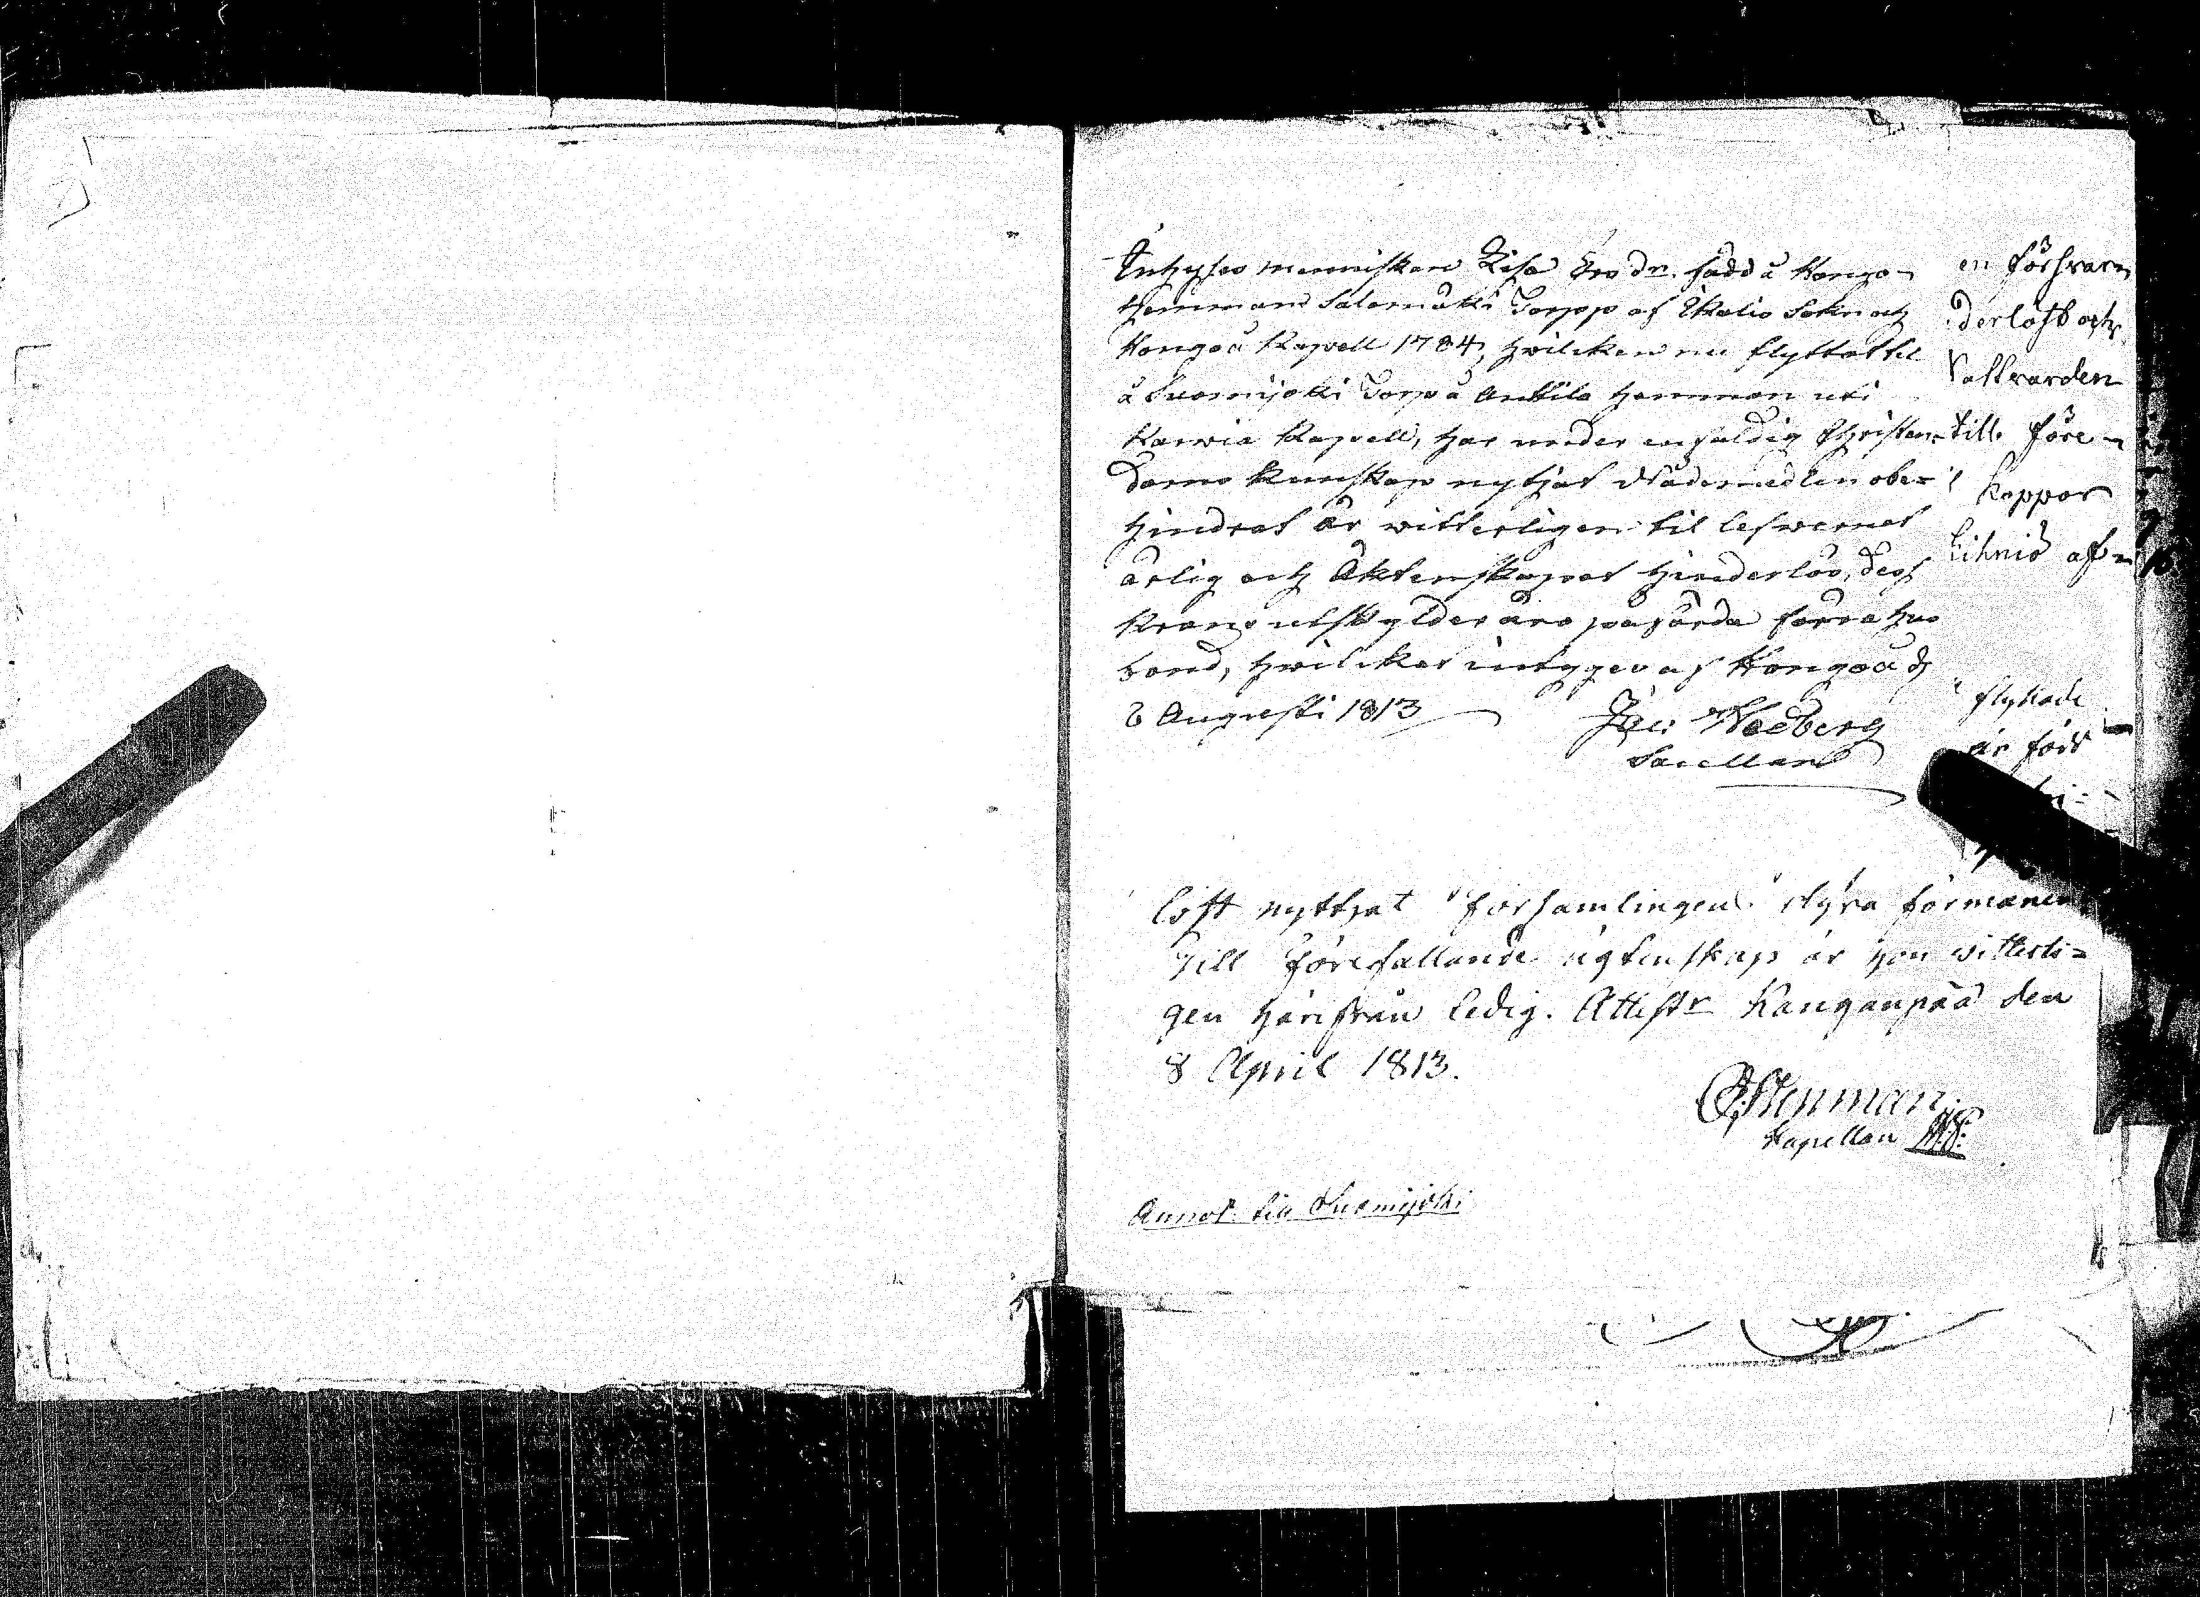 Inhyses menniskan Lisa Ersdr. född å Hongo-
Hemmans Salomäki Torpp af Ikalis Sokn och
Hongoå Kapell 1784, hvilcken nu flyttat til
å Suomijoki Torp å Anttila hemman uti
Karvia Kapell, har under enfaldig Christen-
doms kunskap nytjat Nådemedlen obe-
hindrat är vitterligen til lefwernet
ärlig och Äktenskapet hinderlös, dess
Krono utskylder äro påförda förra hus
bond, hvilcket intygas af Hongoå d
2 Augusti 1813
Jac: Moeberg
Sacellan
en försvars
derlöst och
Vallvarden
till före
Koppar
Kihniö af
flyttade
är född
löft nyttjat församlingens dyra förmåner
Till förefallande ägtenskap är hon vitterli=
gen härifrån ledig. Attestr Kanganpää den
8 April 1813.
Stenman.
Kapellan
Annot. till Suomijoki